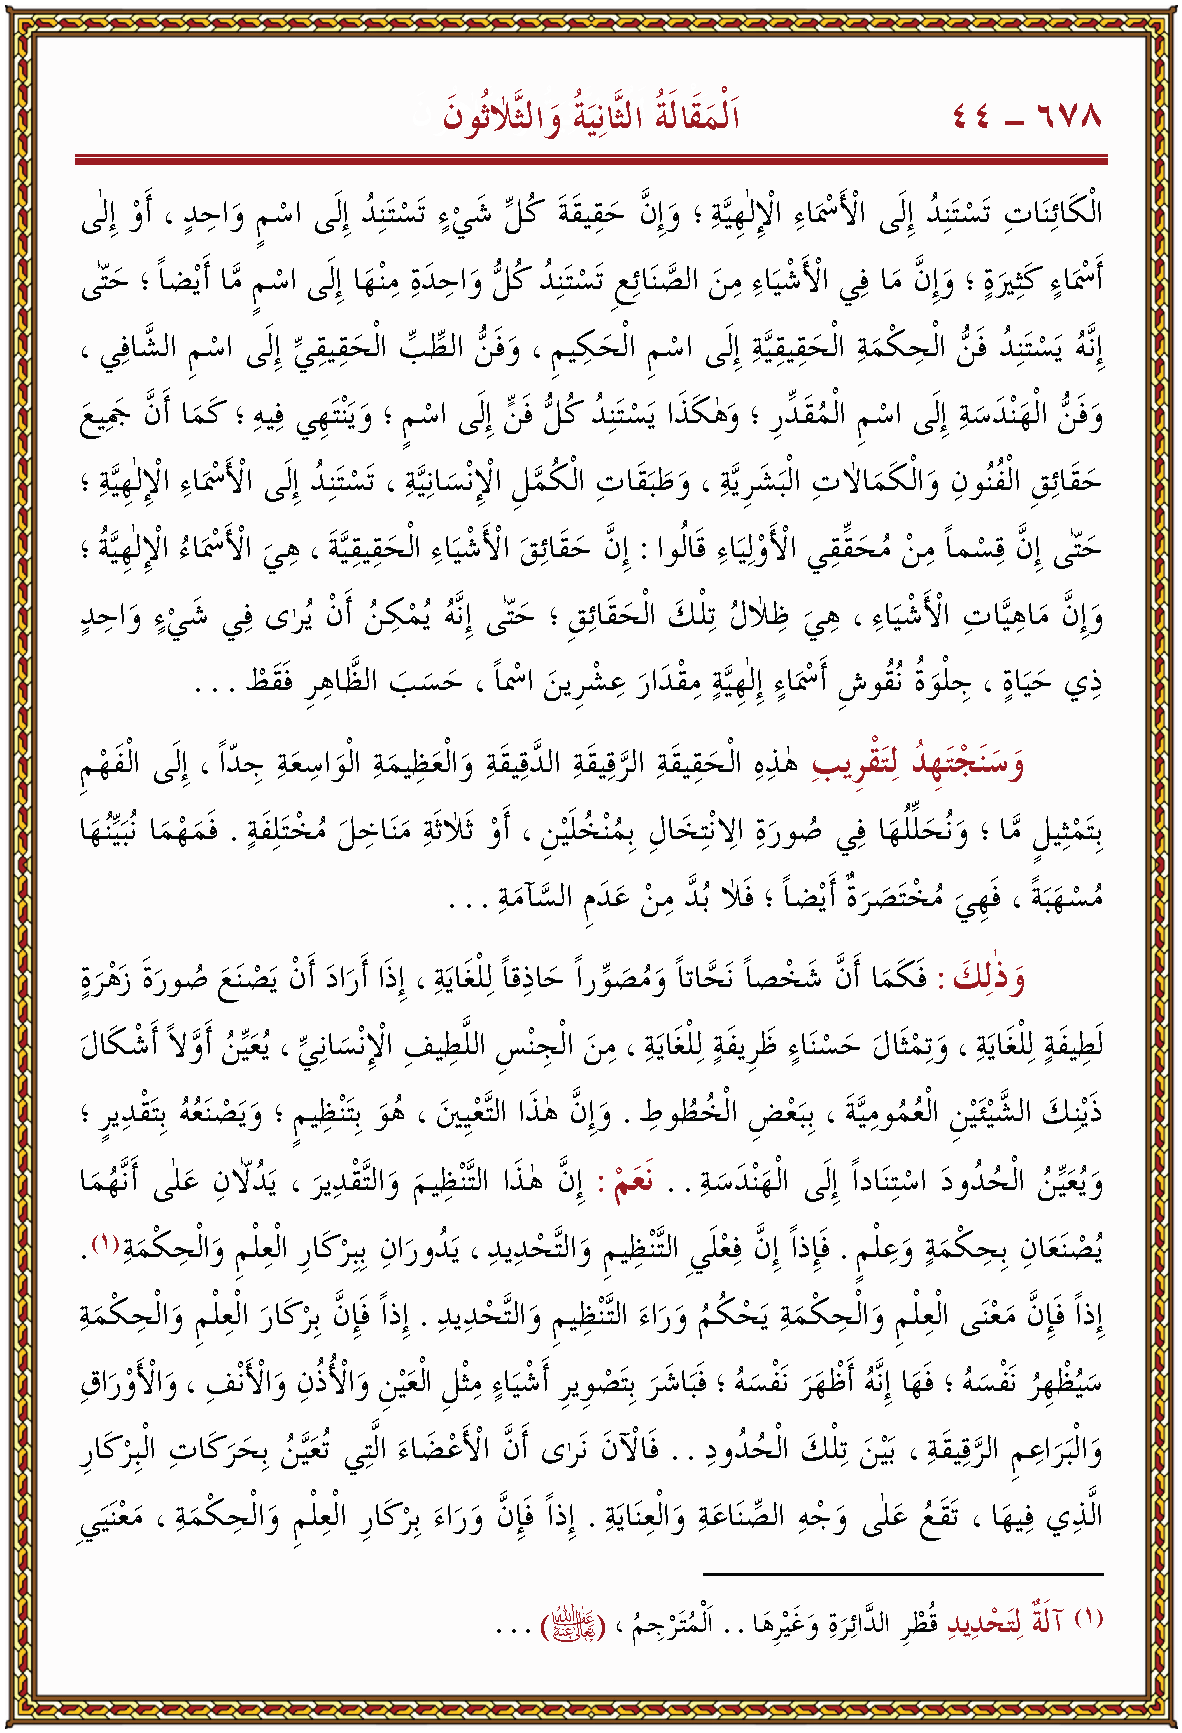 ٦٧٨ – ٤٤
اَلْمَقَالَةُ الثَّانِيَةُ وَالثَّلَاثُونَ
الْكَائِنَاتِ تَسْتَنِدُ اِلَى الْأَسْمَاءِ الْإِلٰهِيَّةِ ؛ وَإِنَّ حَقِيقَةَ كُلِّ شَيْءٍ تَسْتَنِدُ إِلَى اسْمٍ وَاحِدٍ ، أَوْ إِلٰى
أَسْمَاءٍ كَثِيرَةٍ ؛ وَإِنَّ مَا فِي الْأَشْيَاءِ مِنَ الصَّنَائِعِ تَسْتَنِدُ كُلُّ وَاحِدَةٍ مِنْهَا إِلَى اسْمٍ مَّا أَيْضاً ؛ حَتّٰى
إِنَّهُ يَسْتَنِدُ فَنُّ الْحِكْمَةِ الْحَقِيقِيَّةِ إِلَى اسْمِ الْحَكِيمِ ، وَفَنُّ الطِّبِّ الْحَقِيقِيِّ إِلَى اسْمِ الشَّافِي ،
وَفَنُّ الْهَنْدَسَةِ إِلَى اسْمِ الْمُقَدِّرِ ؛ وَهٰكَذَا يَسْتَنِدُ كُلُّ فَنٍّ إِلَى اسْمٍ ؛ وَيَنْتَهِي فِيهِ ؛ كَمَا أَنَّ جَمِيعَ
حَقَائِقِ الْفُنُونِ وَالْكَمَالَاتِ الْبَشَرِيَّةِ ، وَطَبَقَاتِ الْكُمَّلِ الْإِنْسَانِيَّةِ ، تَسْتَنِدُ إِلَى الْأَسْمَاءِ الْإِلٰهِيَّةِ ؛
حَتّٰى إِنَّ قِسْماً مِنْ مُحَقِّقِي الْأَوْلِيَاءِ قَالُوا : إِنَّ حَقَائِقَ الْأَشْيَاءِ الْحَقِيقِيَّةَ ، هِيَ الْأَسْمَاءُ الْإِلٰهِيَّةُ ؛
وَإِنَّ مَاهِيَّاتِ الْأَشْيَاءِ ، هِيَ ظِلَالُ تِلْكَ الْحَقَائِقِ ؛ حَتّٰى إِنَّهُ يُمْكِنُ أَنْ يُرٰى فِي شَيْءٍ وَاحِدٍ
ذِي حَيَاةٍ ، جِلْوَةُ نُقُوشِ أَسْمَاءٍ إِلٰهِيَّةٍ مِقْدَارَ عِشْرِينَ اسْماً ، حَسَبَ الظَّاهِرِ فَقَطْ . . .
وَسَنَجْتَهِدُ لِتَقْرِيبِ هٰذِهِ الْحَقِيقَةِ الرَّقِيقَةِ الدَّقِيقَةِ وَالْعَظِيمَةِ الْوَاسِعَةِ جِدّاً ، إِلَى الْفَهْمِ
بِتَمْثِيلٍ مَّا ؛ وَنُحَلِّلُهَا فِي صُورَةِ الِانْتِخَالِ بِمُنْخُلَيْنِ ، أَوْ ثَلَاثَةِ مَنَاخِلَ مُخْتَلِفَةٍ . فَمَهْمَا نُبَيِّنُهَا
مُسْهَبَةً ، فَهِيَ مُخْتَصَرَةٌ أَيْضاً ؛ فَلَا بُدَّ مِنْ عَدَمِ السَّآمَةِ . . .
وَذٰلِكَ : فَكَمَا أَنَّ شَخْصاً نَحَّاتاً وَمُصَوِّراً حَاذِقاً لِلْغَايَةِ ، إِذَا أَرَادَ أَنْ يَصْنَعَ صُورَةَ زَهْرَةٍ
لَطِيفَةٍ لِلْغَايَةِ ، وَتِمْثَالَ حَسْنَاءٍ ظَرِيفَةٍ لِلْغَايَةِ ، مِنَ الْجِنْسِ اللَّطِيفِ الْإِنْسَانِيِّ ، يُعَيِّنُ أَوَّلاً أَشْكَالَ
ذَيْنِكَ الشَّيْئَيْنِ الْعُمُومِيَّةَ ، بِبَعْضِ الْخُطُوطِ . وَإِنَّ هٰذَا التَّعْيِينَ ، هُوَ بِتَنْظِيمٍ ؛ وَيَصْنَعُهُ بِتَقْدِيرٍ ؛
وَيُعَيِّنُ الْحُدُودَ اسْتِنَاداً إِلَى الْهَنْدَسَةِ . . نَعَمْ : إِنَّ هٰذَا التَّنْظِيمَ وَالتَّقْدِيرَ ، يَدُلَّانِ عَلٰى أَنَّهُمَا
يُصْنَعَانِ بِحِكْمَةٍ وَعِلْمٍ . فَإِذاً إِنَّ فِعْلَيِ التَّنْظِيمِ وَالتَّحْدِيدِ ، يَدُورَانِ بِبِرْكَارِ الْعِلْمِ وَالْحِكْمَةِ(١).
إِذاً فَإِنَّ مَعْنَى الْعِلْمِ وَالْحِكْمَةِ يَحْكُمُ وَرَاءَ التَّنْظِيمِ وَالتَّحْدِيدِ . إِذاً فَإِنَّ بِرْكَارَ الْعِلْمِ وَالْحِكْمَةِ
سَيُظْهِرُ نَفْسَهُ ؛ فَهَا إِنَّهُ أَظْهَرَ نَفْسَهُ ؛ فَبَاشَرَ بِتَصْوِيرِ أَشْيَاءٍ مِثْلِ الْعَيْنِ وَالْأُذُنِ وَالْأَنْفِ ، وَالْأَوْرَاقِ
وَالْبَرَاعِمِ الرَّقِيقَةِ ، بَيْنَ تِلْكَ الْحُدُودِ . . فَالْآنَ نَرٰى أَنَّ الْأَعْضَاءَ الَّتِي تُعَيَّنُ بِحَرَكَاتِ الْبِرْكَارِ
الَّذِي فِيهَا ، تَقَعُ عَلٰى وَجْهِ الصِّنَاعَةِ وَالْعِنَايَةِ . إِذاً فَإِنَّ وَرَاءَ بِرْكَارِ الْعِلْمِ وَالْحِكْمَةِ ، مَعْنَيَيِ
(١) آلَةٌ لِتَحْدِيدِ قُطْرِ الدَّائِرَةِ وَغَيْرِهَا . . اَلْمُتَرْجِمُ ، ( ) . . .